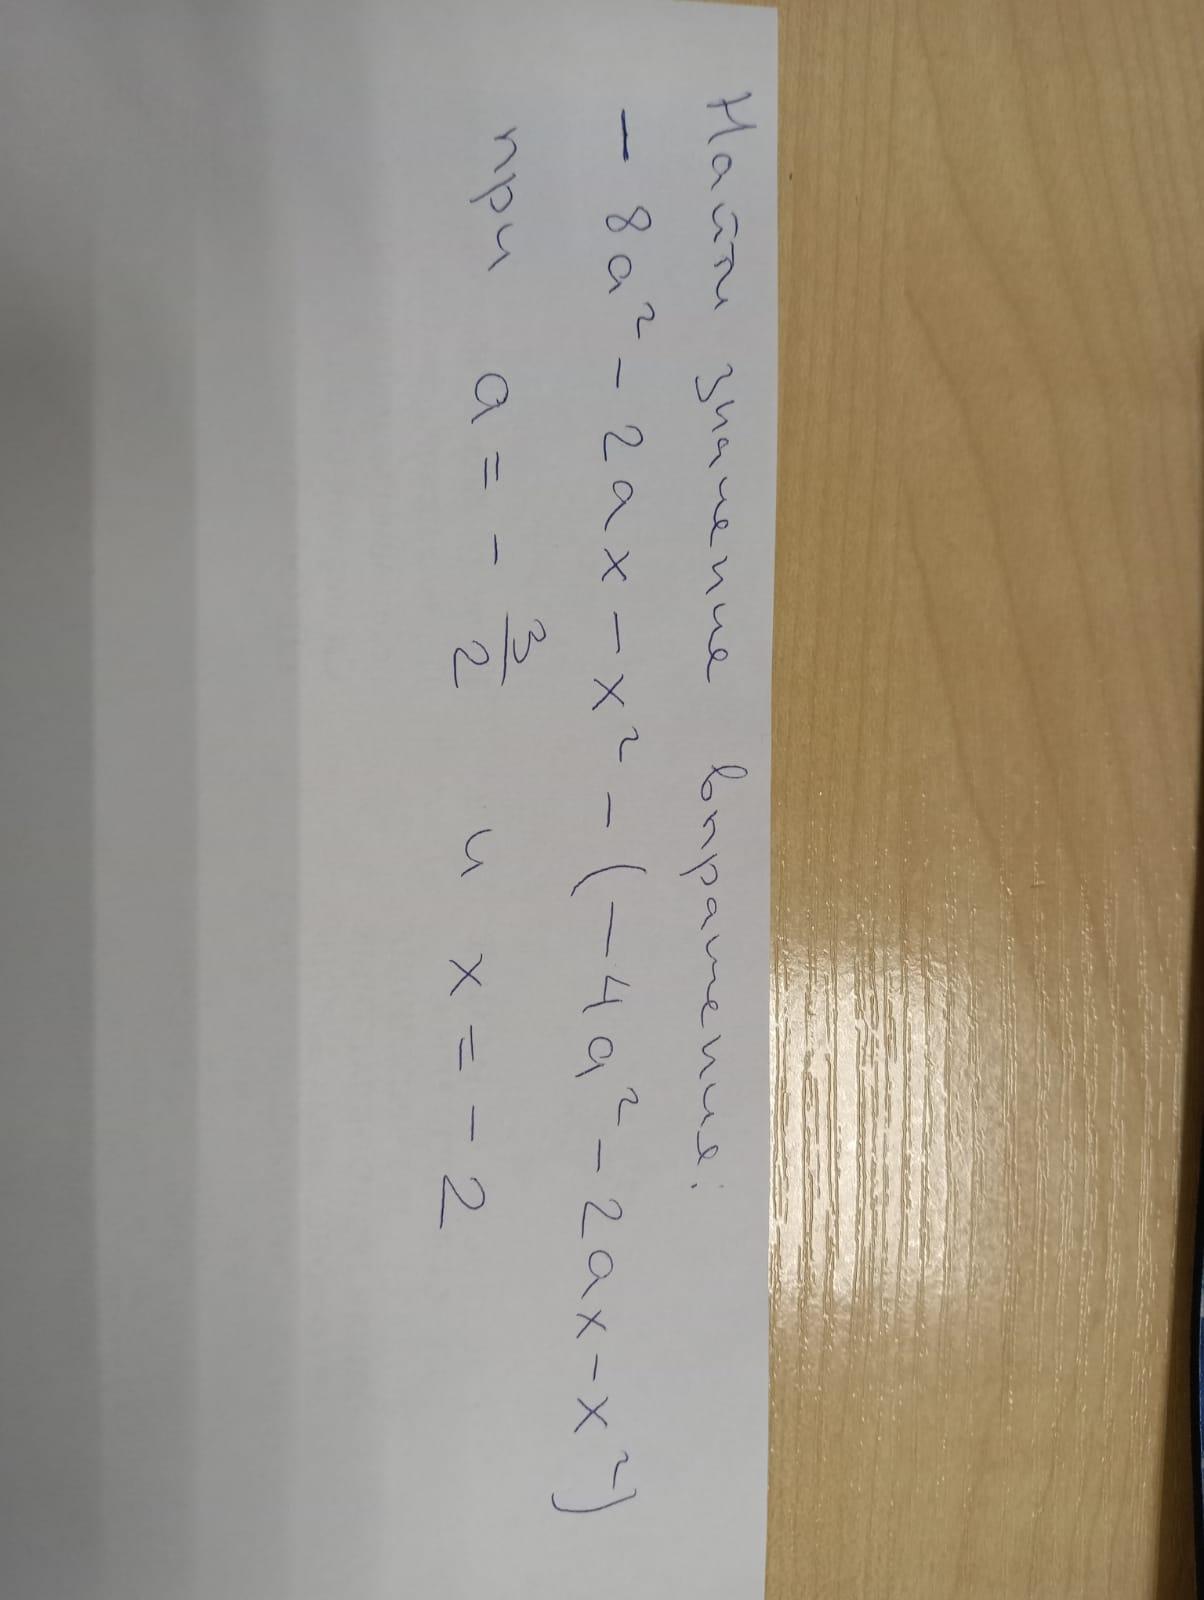 Найти значение выражения:
- 8a² - 2ax - x² - (-4a² - 2ax - x²)
при a = - 3/2 и x = - 2